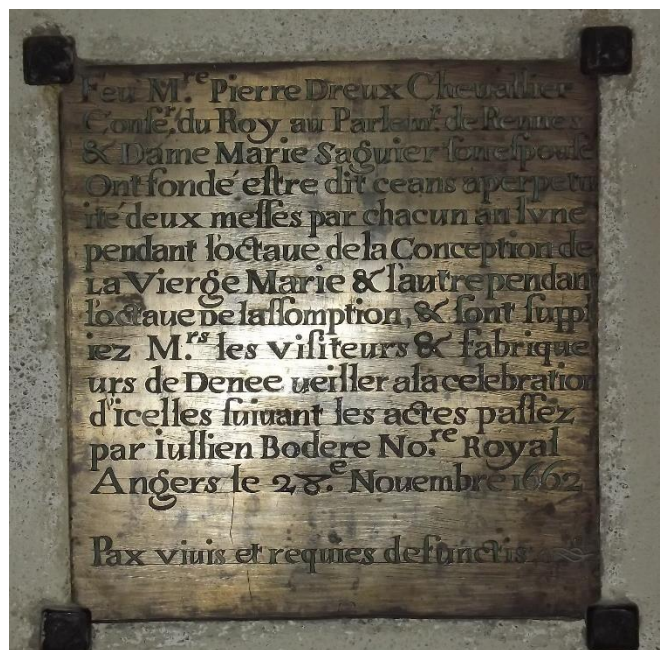 Feu M.re Pierre Dreux Cheuallier
Conser.r du Roy au Parlem.t de Rennes
& Dame Marie Saguier son espouse
Ont fondé estre dit ceans a perpetu
ité deux messes par chacun an lvne
pendant l'octaue de la Conception de
La Vierge Marie & l'autre pendant
l'octaue De lassomption, & sont suppl
iez M.rs les visiteurs & fabrique
urs de Denee ueiller a la celebration
d'icelles suiuant les actes passez
par iullien Bodere No.re Royal
Angers le 28.e Nouembre 1662
Pax viuis et requies defunctis